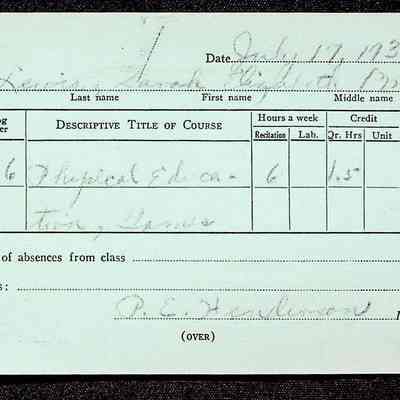 Date July 17, 193
Lewis, Sarah Elizabeth
Last name First name Middle name
og Descriptive Title of Course Hours a week Credit
er Recitation Lab. Qr. Hrs Unit
6 Physical Educa- 6 1.5
tion, Games
of absences from class
s:
P. E.
(OVER)